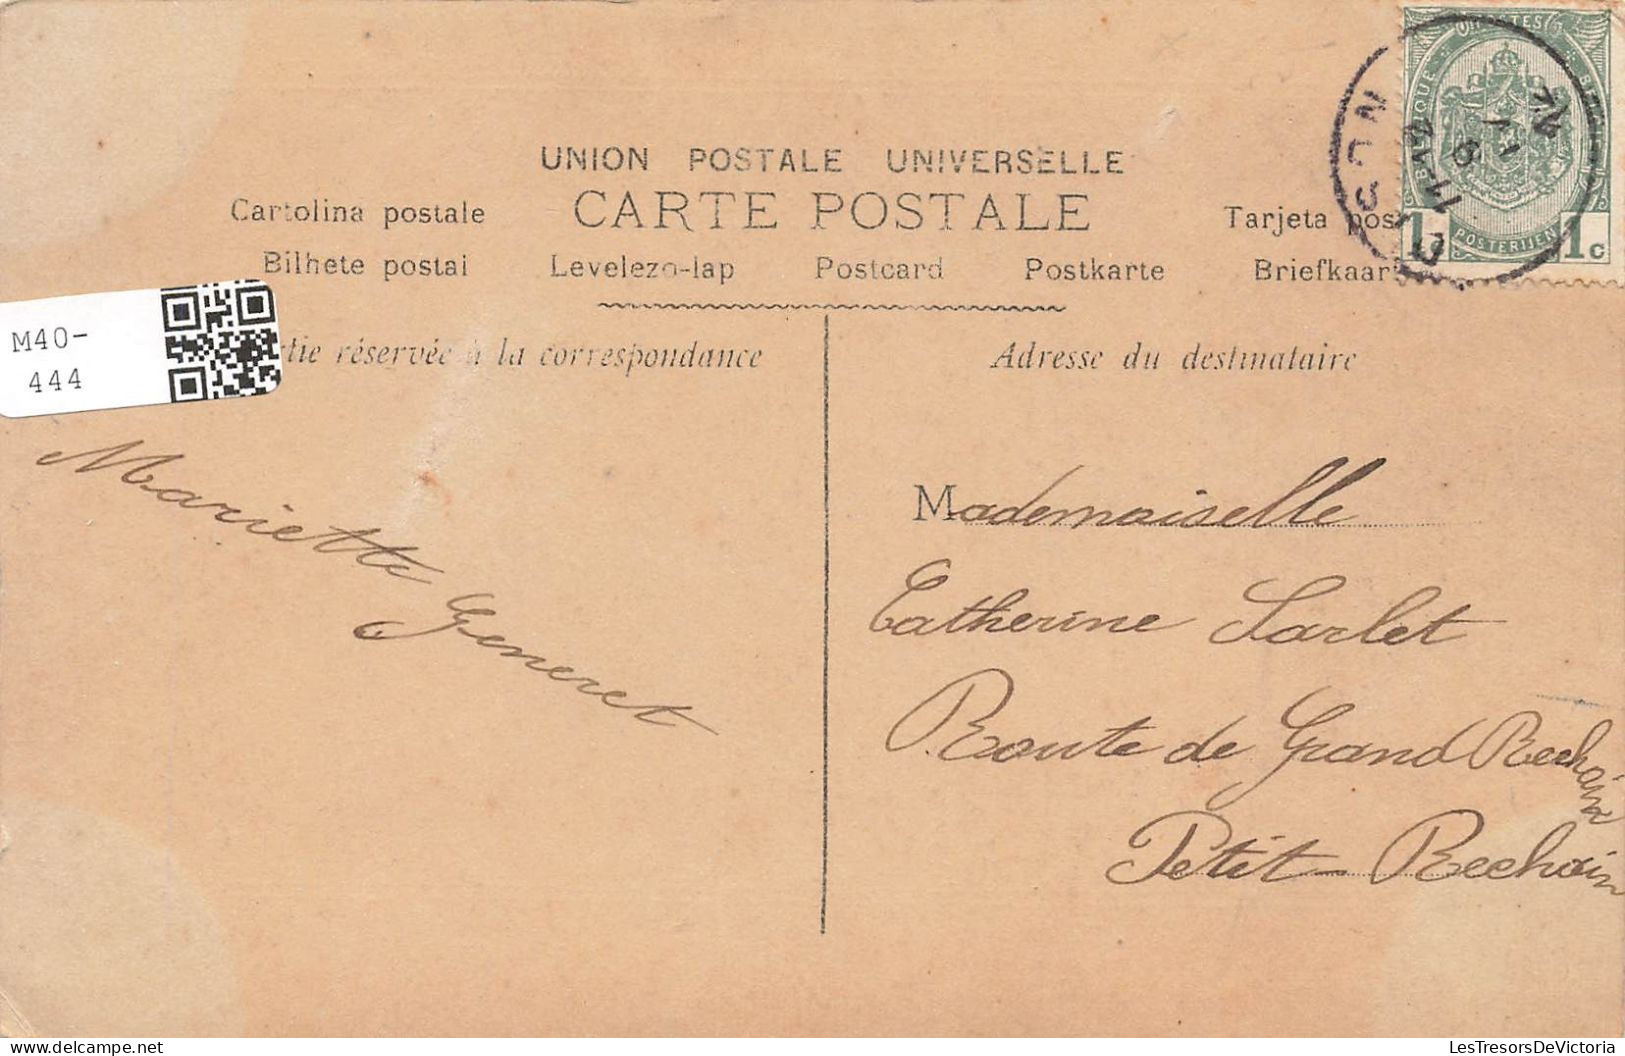 UNION POSTALE UNIVERSELLE
CARTE POSTALE
Cartolina postale
Tarjeta pos
Bilhete postal Levelezo-lap Postcard Postkarte Briefkaar
rtie réservée à la correspondance
Adresse du destinataire
M40-
444
POSTERIJEN
1 1c
DISON
11-12
Mariette Generet
Mademoiselle
Catherine Sarlet
Route de Grand Rechain
Petit-Rechain
LesTresorsDeVictoria